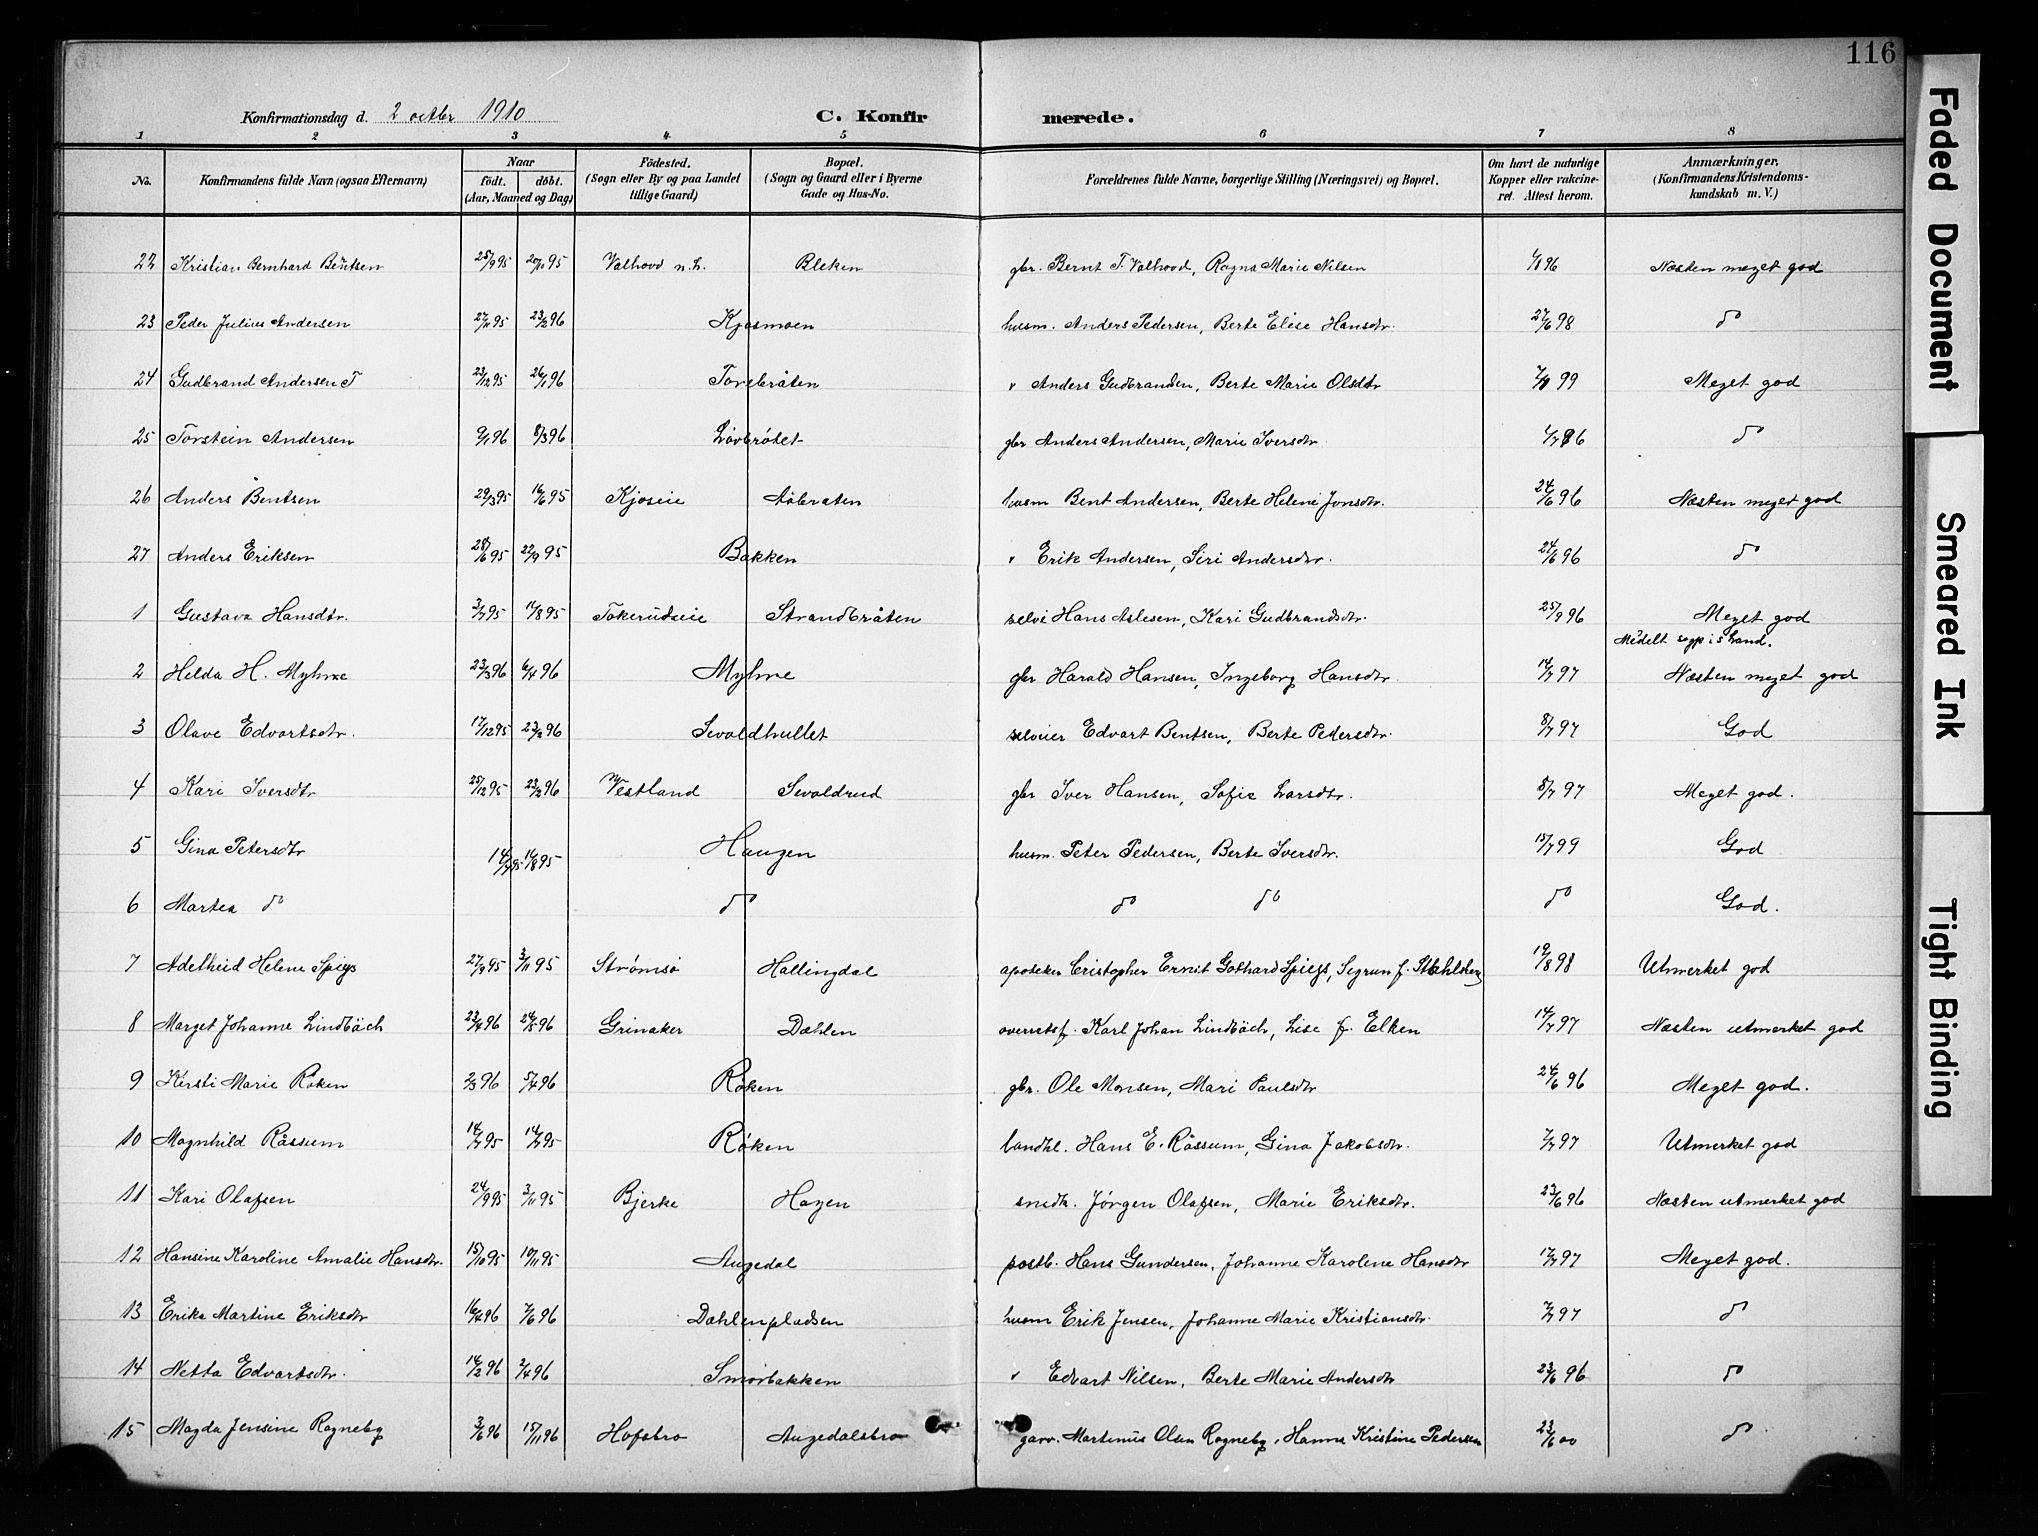 116
Konfirmationsdag d. 2 octbr 1910
C. Konfirmerede.
1 2 3 4 5 6 7 8
No. Konfirmandens fulde Navn (ogsaa Efternavn) Naar födt. döbt. (Aar, Maaned og Dag) Födested. (Sogn eller By og paa Landet tillige Gaard) Bopæl. (Sogn og Gaard eller i Byerne Gade og Hus-No. Forældrenes fulde Navne, borgerlige Stilling (Næringsvei) og Bopæl. Om havt de naturlige Kopper eller vakcineret. Attest herom. Anmærkninger. (Konfirmandens Kristendomskundskab m. V.)
22 Kristian Bernhard Bentsen 25/9 95 Valhovd n.l. Bleken gbr. Bernt T. Valhovd, Ragna Marie Nilsen Næsten meget god
23 Peder Julius Andersen 27/11 95 23/2 96 Kjosmoen husm. Anders Pedersen, Berte Elise Hansdtr. 27/6 98 do
24 Gudbrand Andersen T 23/12 95 26/1 96 Torsbråten " Anders Gudbrandsen, Berte Marie Olsdtr Meget god
25 Torstein Andersen 9/1 96 8/3 96 Lövbrötet gbr Anders Andersen, Marie Iversdtr do
26 Anders Bentsen 29/3 95 16/6 95 Kjoseie Aabraten husm Bent Andersen, Berte Helene Jonsdtr. 24/6 96 Næsten meget god
27 Anders Eriksen 22/9 95 Bakken " Erik Andersen, Siri Andersdtr. 24/6 96 do
1 Gustava Hansdtr. 3/7 95 Tokerudseie Strandbråten selvei Hans Aslesen, Kari Gudbrandsdtr. 25/9 96 Meget god
Medelt sogp i s Land.
2 Helda H. Myhre 23/3 96 6/4 96 Myhre gbr Harald Hansen, Ingeborg Hansdtr. 14/7 97 Næsten meget god
3 Olave Edvartsdtr. 17/12 95 23/2 96 Sevaldhullet selveier Edvart Bentsen, Berte Pedersdtr. 8/7 97 God
4 Kari Iversdtr 25/12 95 23/2 96 Vestland Sevaldrud gbr Iver Hansen, Sofie Larsdtr. 8/7 97 Meget god.
5 Gina Petersdtr 14/7 95 Haugen husm. Peter Pedersen, Berte Iversdtr. 15/7 99 God
6 Martea do do do do do God.
7 Adelheid Helene Spiegs 27/9 95 3/11 95 Strømsö Hallingdal apoteker Cristopher Ernst Gothard Spiegs, Segrun f. 19/8 98 Utmerket god
8 Marget Johanne Lindbäch 24/5 96 Grinaker Dæhlen overretsf. Karl Johan Lindbäch, Lise f. Elken 14/7 97 Næsten utmerket god
9 Kersti Marie Røken 2/3 96 5/4 96 Røken gbr. Ole Monsen, Mari Paulsdtr 24/6 96 Meget god.
10 Magnhild Råssum 14/7 95 Røken landhl. Hans E. Råssum, Gina Jakobsdtr. 7/7 97 Utmerket god
11 Kari Olafsen 24/9 95 3/11 95 Bjerke Hagen snedk. Jörgen Olafsen, Marie Eriksdtr. 23/6 96 Næsten utmerket god
12 Hansine Karoline Amalie Hansdtr. 15/10 95 10/11 95 Augedal postb. Hans Gundersen, Johanne Karolene Hansdtr 97 Meget god.
13 Erika Martine Eriksdtr 16/4 96 7/6 96 Dæhlenpladsen husm Erik Jensen, Johanne Marie Kristiansdtr. 7/7 97 do
14 Netta Edvartsdtr. 14/2 96 2/4 96 Smörbakken " Edvart Nilsen, Berte Marie Andersdtr 23/6 96 do
15 Magda Jensine Rogneby 3/6 96 15/11 96 Hofsbro Augedalsbro garv. Martinus Olsen Rogneby, Hanna Kristine Pedersen 23/6 00 do
Faded Document
Smeared Ink
Tight Binding